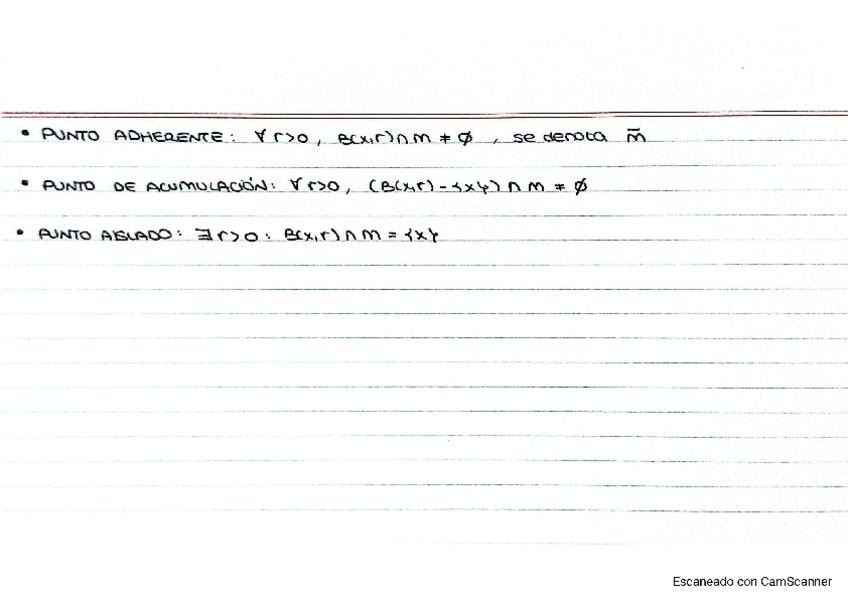 • PUNTO ADHERENTE: ∀ r>0, B(x,r)∩M ≠ ∅, se denota M̄
• PUNTO DE ACUMULACIÓN: ∀ r>0, (B(x,r)-{x})∩M ≠ ∅
• PUNTO AISLADO: ∃ r>0: B(x,r)∩M = {x}
Escaneado con CamScanner